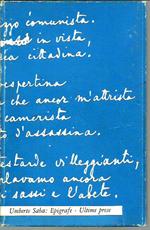 zzo comunista.
in vista,
cittadina.
espertina
che ancor m'attrista
camerista
d'assassina.
estarde villeggianti,
lavamo ancora
i sassi e l'abete.
Umberto Saba: Epigrafe - Ultime prose